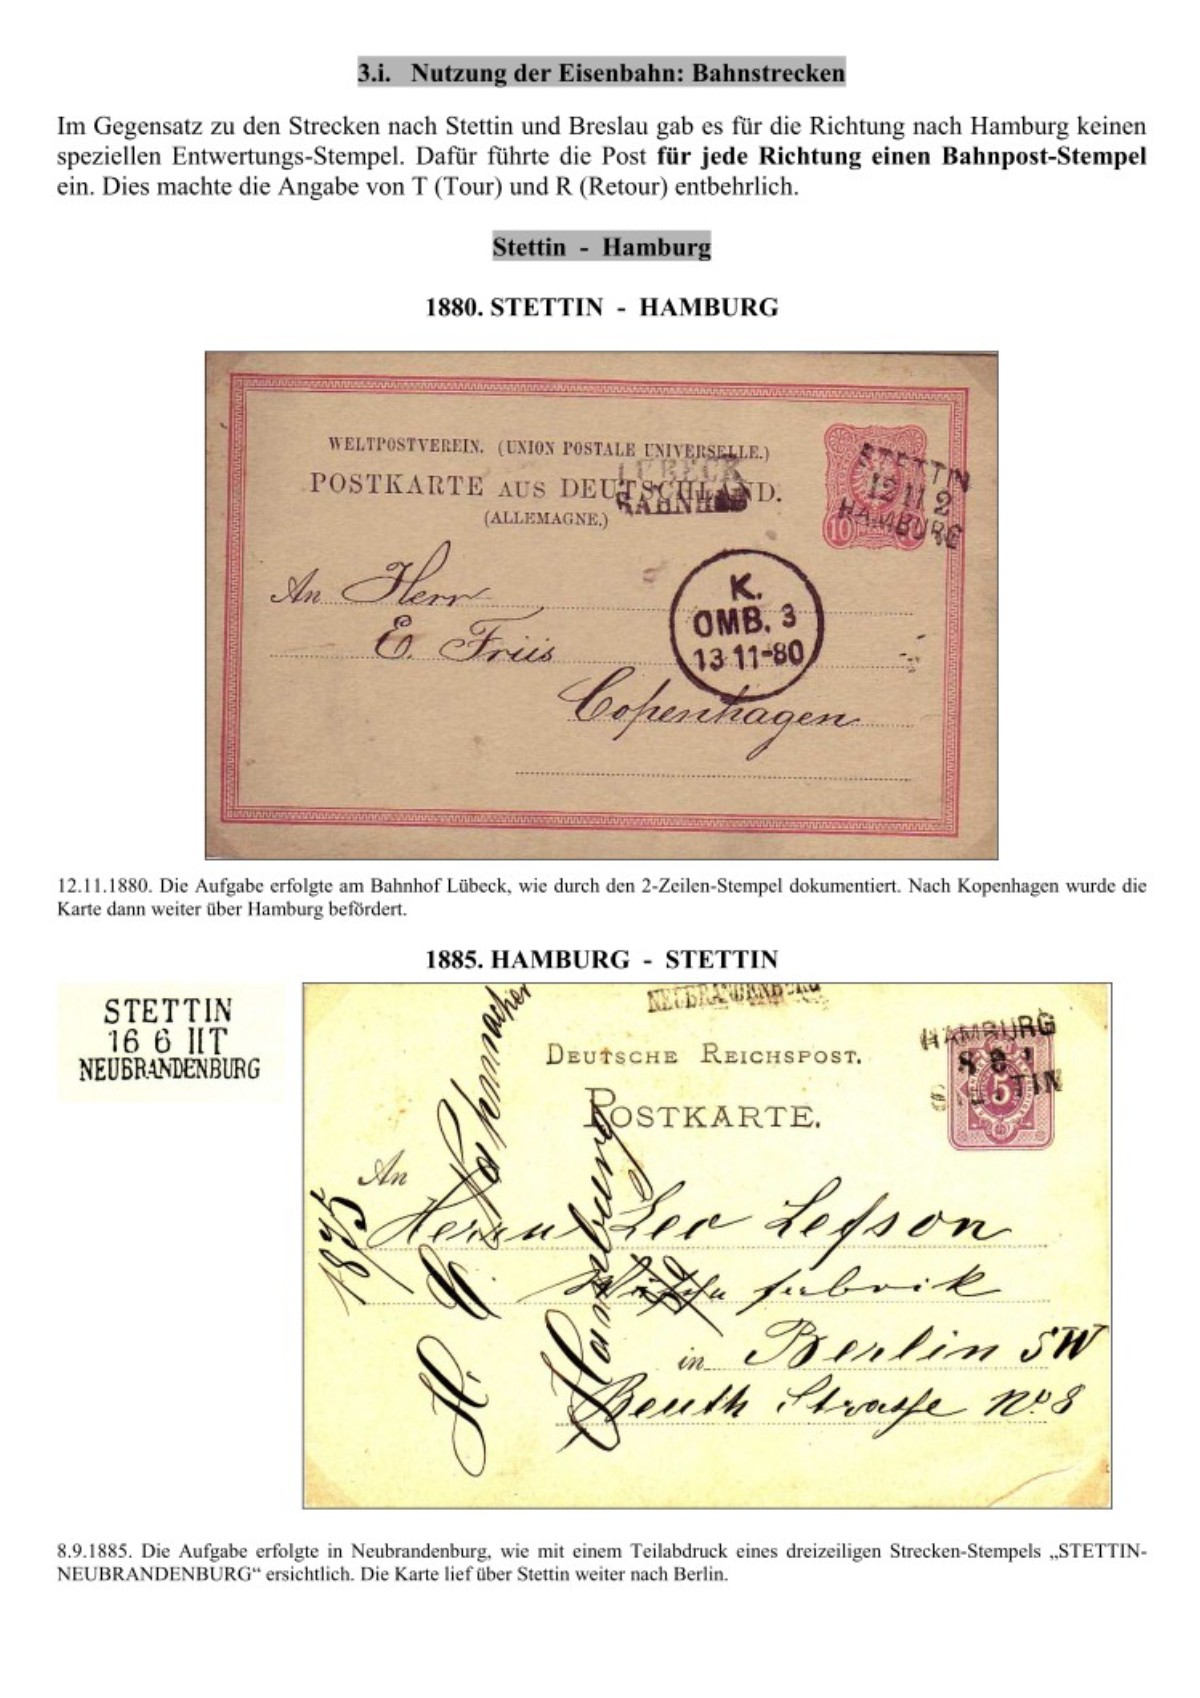 3.i. Nutzung der Eisenbahn: Bahnstrecken
Im Gegensatz zu den Strecken nach Stettin und Breslau gab es für die Richtung nach Hamburg keinen
speziellen Entwertungs-Stempel. Dafür führte die Post für jede Richtung einen Bahnpost-Stempel
ein. Dies machte die Angabe von T (Tour) und R (Retour) entbehrlich.
Stettin - Hamburg
1880. STETTIN - HAMBURG
WELTPOSTVEREIN. (UNION POSTALE UNIVERSELLE.)
LUBECK
BAHNHOF
POSTKARTE AUS DEUTSCHLAND.
(ALLEMAGNE.)
STETTIN
12 11 2
HAMBURG
10
An Herr
E. Friis
Copenhagen
K.
OMB. 3
13 11-80
12.11.1880. Die Aufgabe erfolgte am Bahnhof Lübeck, wie durch den 2-Zeilen-Stempel dokumentiert. Nach Kopenhagen wurde die
Karte dann weiter über Hamburg befördert.
1885. HAMBURG - STETTIN
STETTIN
16 6 IIT
NEUBRANDENBURG
NEUBRANDENBURG
DEUTSCHE REICHSPOST.
POSTKARTE.
HAMBURG
8 9 1
STETTIN
5
An
Herrn Leo Lefson
fabrik
in Berlin SW
Beuth Strasse No 8
1885
Hamburg
8.9.1885. Die Aufgabe erfolgte in Neubrandenburg, wie mit einem Teilabdruck eines dreizeiligen Strecken-Stempels „STETTIN-
NEUBRANDENBURG“ ersichtlich. Die Karte lief über Stettin weiter nach Berlin.